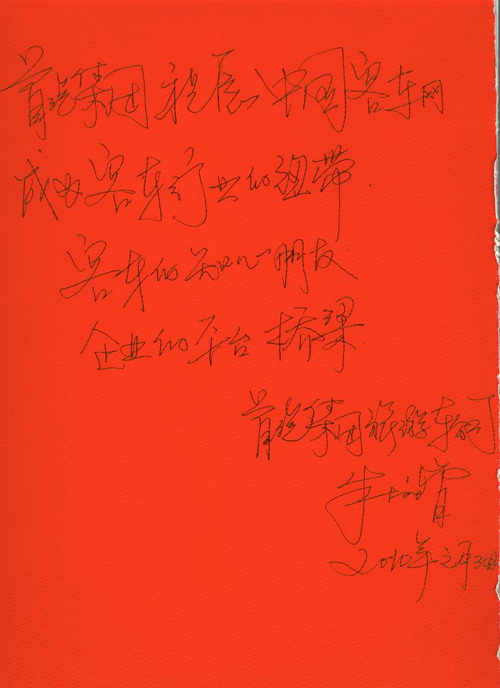 首汽集团祝愿中国客车网
成为客车行业的纽带
客车的知心朋友
企业的平台桥梁
首汽集团旅游车公司
2010年元月30日